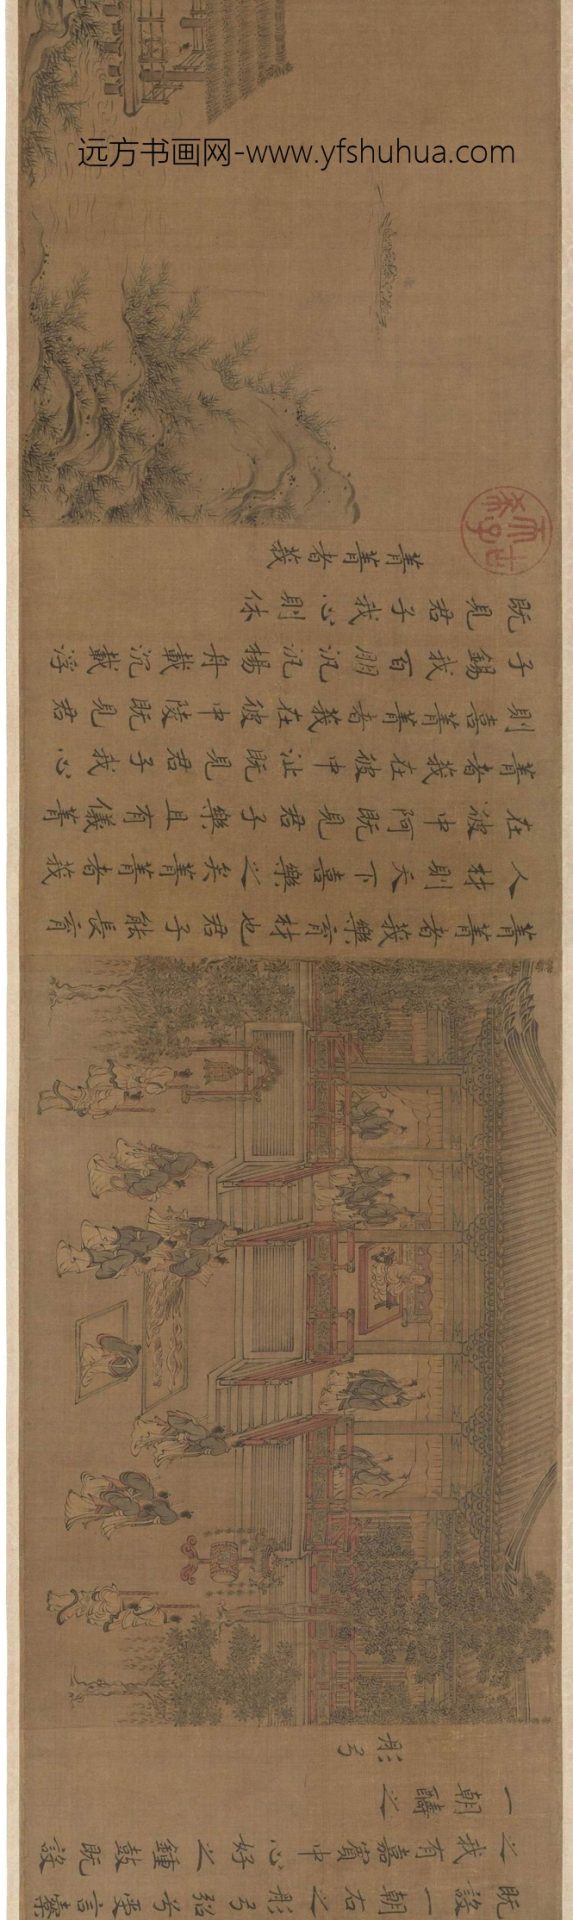 远方书画网-www.yfshuhua.com
既設一朝右之彤弓弨兮受言櫜
之我有嘉賓中心好之鍾鼓既設
一朝醻之
彤弓
菁菁者莪樂育材也君子能長育
人材則天下喜樂之矣菁菁者莪
在彼中阿既見君子樂且有儀菁
菁者莪在彼中沚既見君子我心
則喜菁菁者莪在彼中陵既見君
子錫我百朋汎汎楊舟載沉載浮
既見君子我心則休
菁菁者莪
古希天子